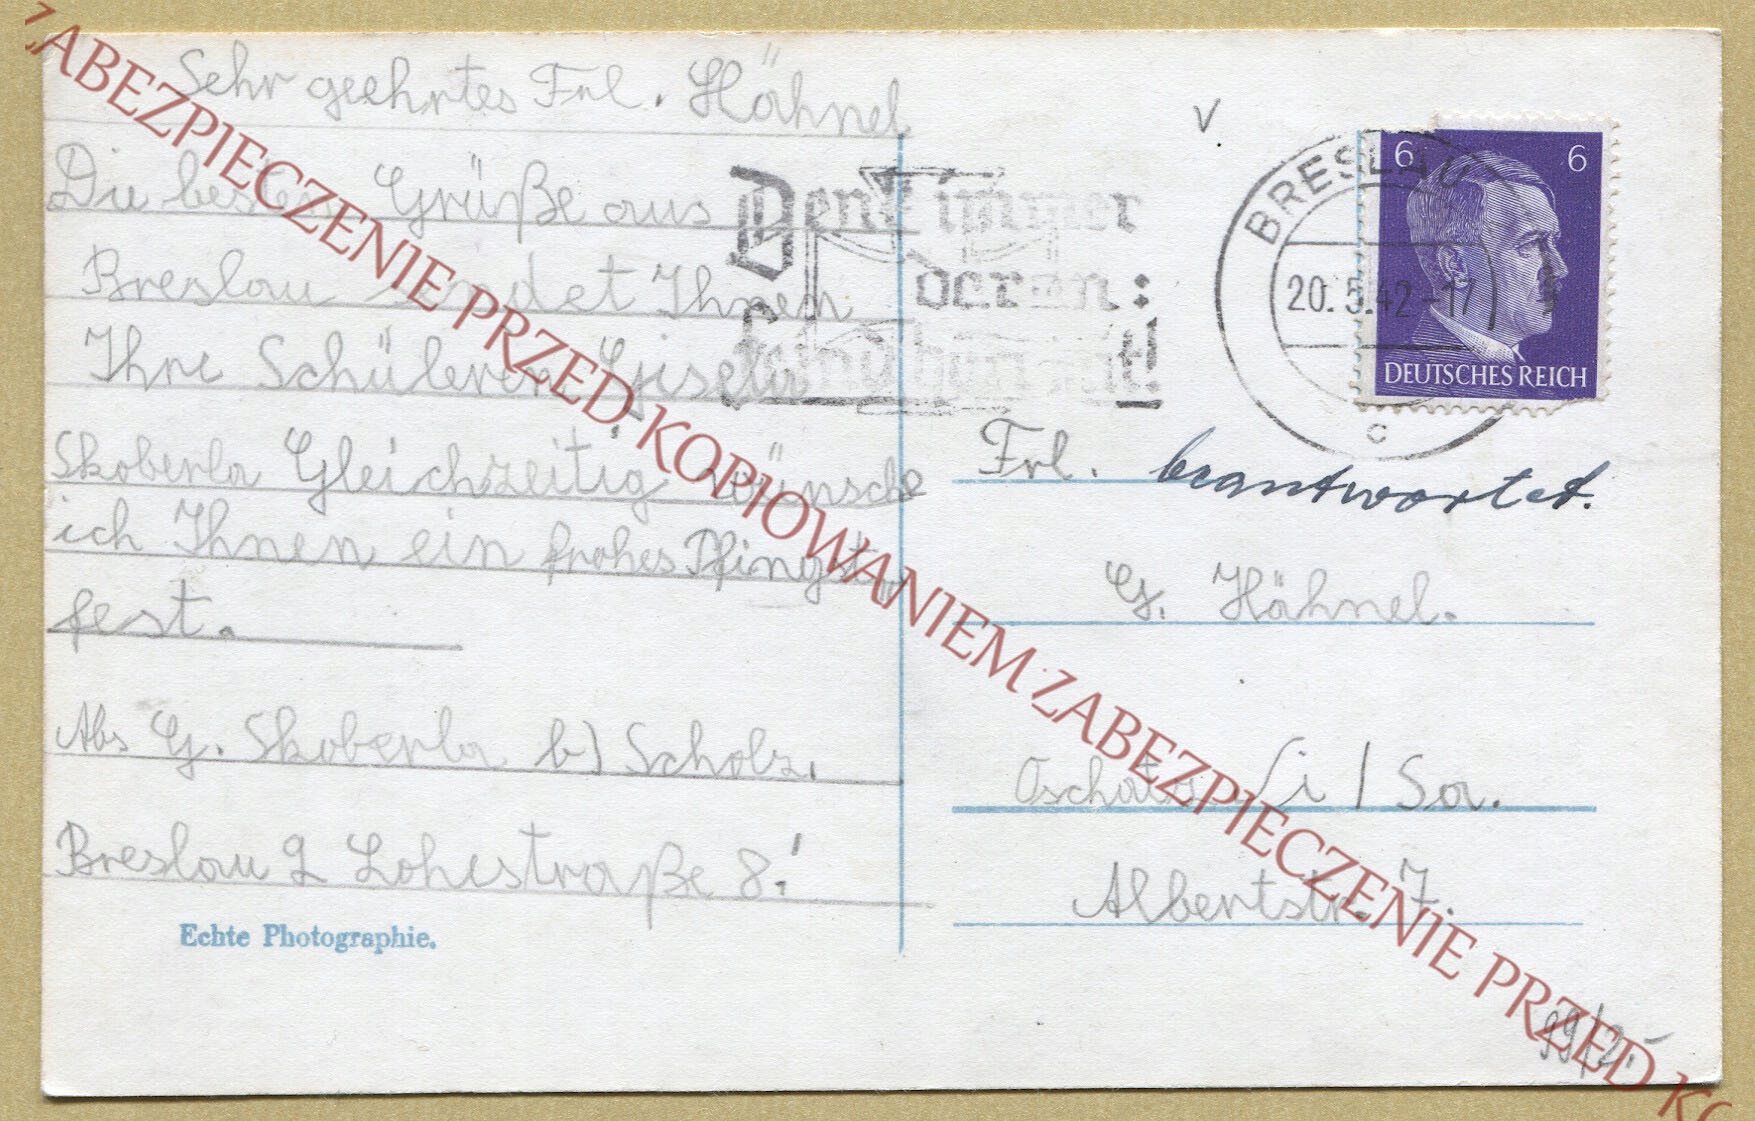 Sehr geehrtes Frl. Hähnel
Die besten Grüße aus
Breslau sendet Ihnen
Ihre Schülerin Gisela
Skoberla Gleichzeitig wünsche
ich Ihnen ein frohes Pfingst„
fest.
Abs G. Skoberla b) Scholz.
Breslau 2 Lohestraße 8!
Echte Photographie.
Denk immer
daran:
Feind hört mit!
BRESLAU
20.5.42-17
c
6 6
DEUTSCHES REICH
Frl. beantwortet.
G. Hähnel.
Oschatz i / Sa.
Albertstr. 7.
ZABEZPIECZENIE PRZED KOPIOWANIEM ZABEZPIECZENIE PRZED KO